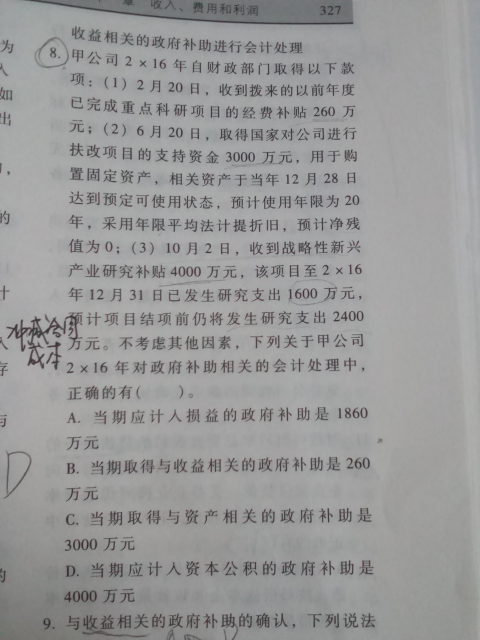 章 收入、费用和利润 327
收益相关的政府补助进行会计处理
8. 甲公司 2×16 年自财政部门取得以下款
项：（1）2 月 20 日，收到拨来的以前年度
已完成重点科研项目的经费补贴 260 万
元；（2）6 月 20 日，取得国家对公司进行
扶改项目的支持资金 3000 万元，用于购
置固定资产，相关资产于当年 12 月 28 日
达到预定可使用状态，预计使用年限为 20
年，采用年限平均法计提折旧，预计净残
值为 0；（3）10 月 2 日，收到战略性新兴
产业研究补贴 4000 万元，该项目至 2×16
年 12 月 31 日已发生研究支出 1600 万元，
预计项目结项前仍将发生研究支出 2400
万元。不考虑其他因素，下列关于甲公司
2×16 年对政府补助相关的会计处理中，
正确的有（ ）。
A. 当期应计入损益的政府补助是 1860
万元
B. 当期取得与收益相关的政府补助是 260
万元
C. 当期取得与资产相关的政府补助是
3000 万元
D. 当期应计入资本公积的政府补助是
4000 万元
9. 与收益相关的政府补助的确认，下列说法
为
人
如
出
的
计
人
存
与
的
成本